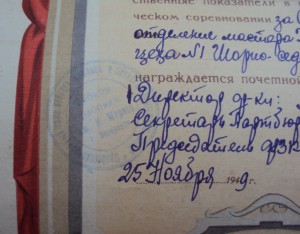 ственные показатели в
ческом соревновании за
отделение мастера
цеха №1
награждается почетной
Директор ф-ки:
Секретарь Партбюр
Председатель фзк
25 Ноября 1969г.